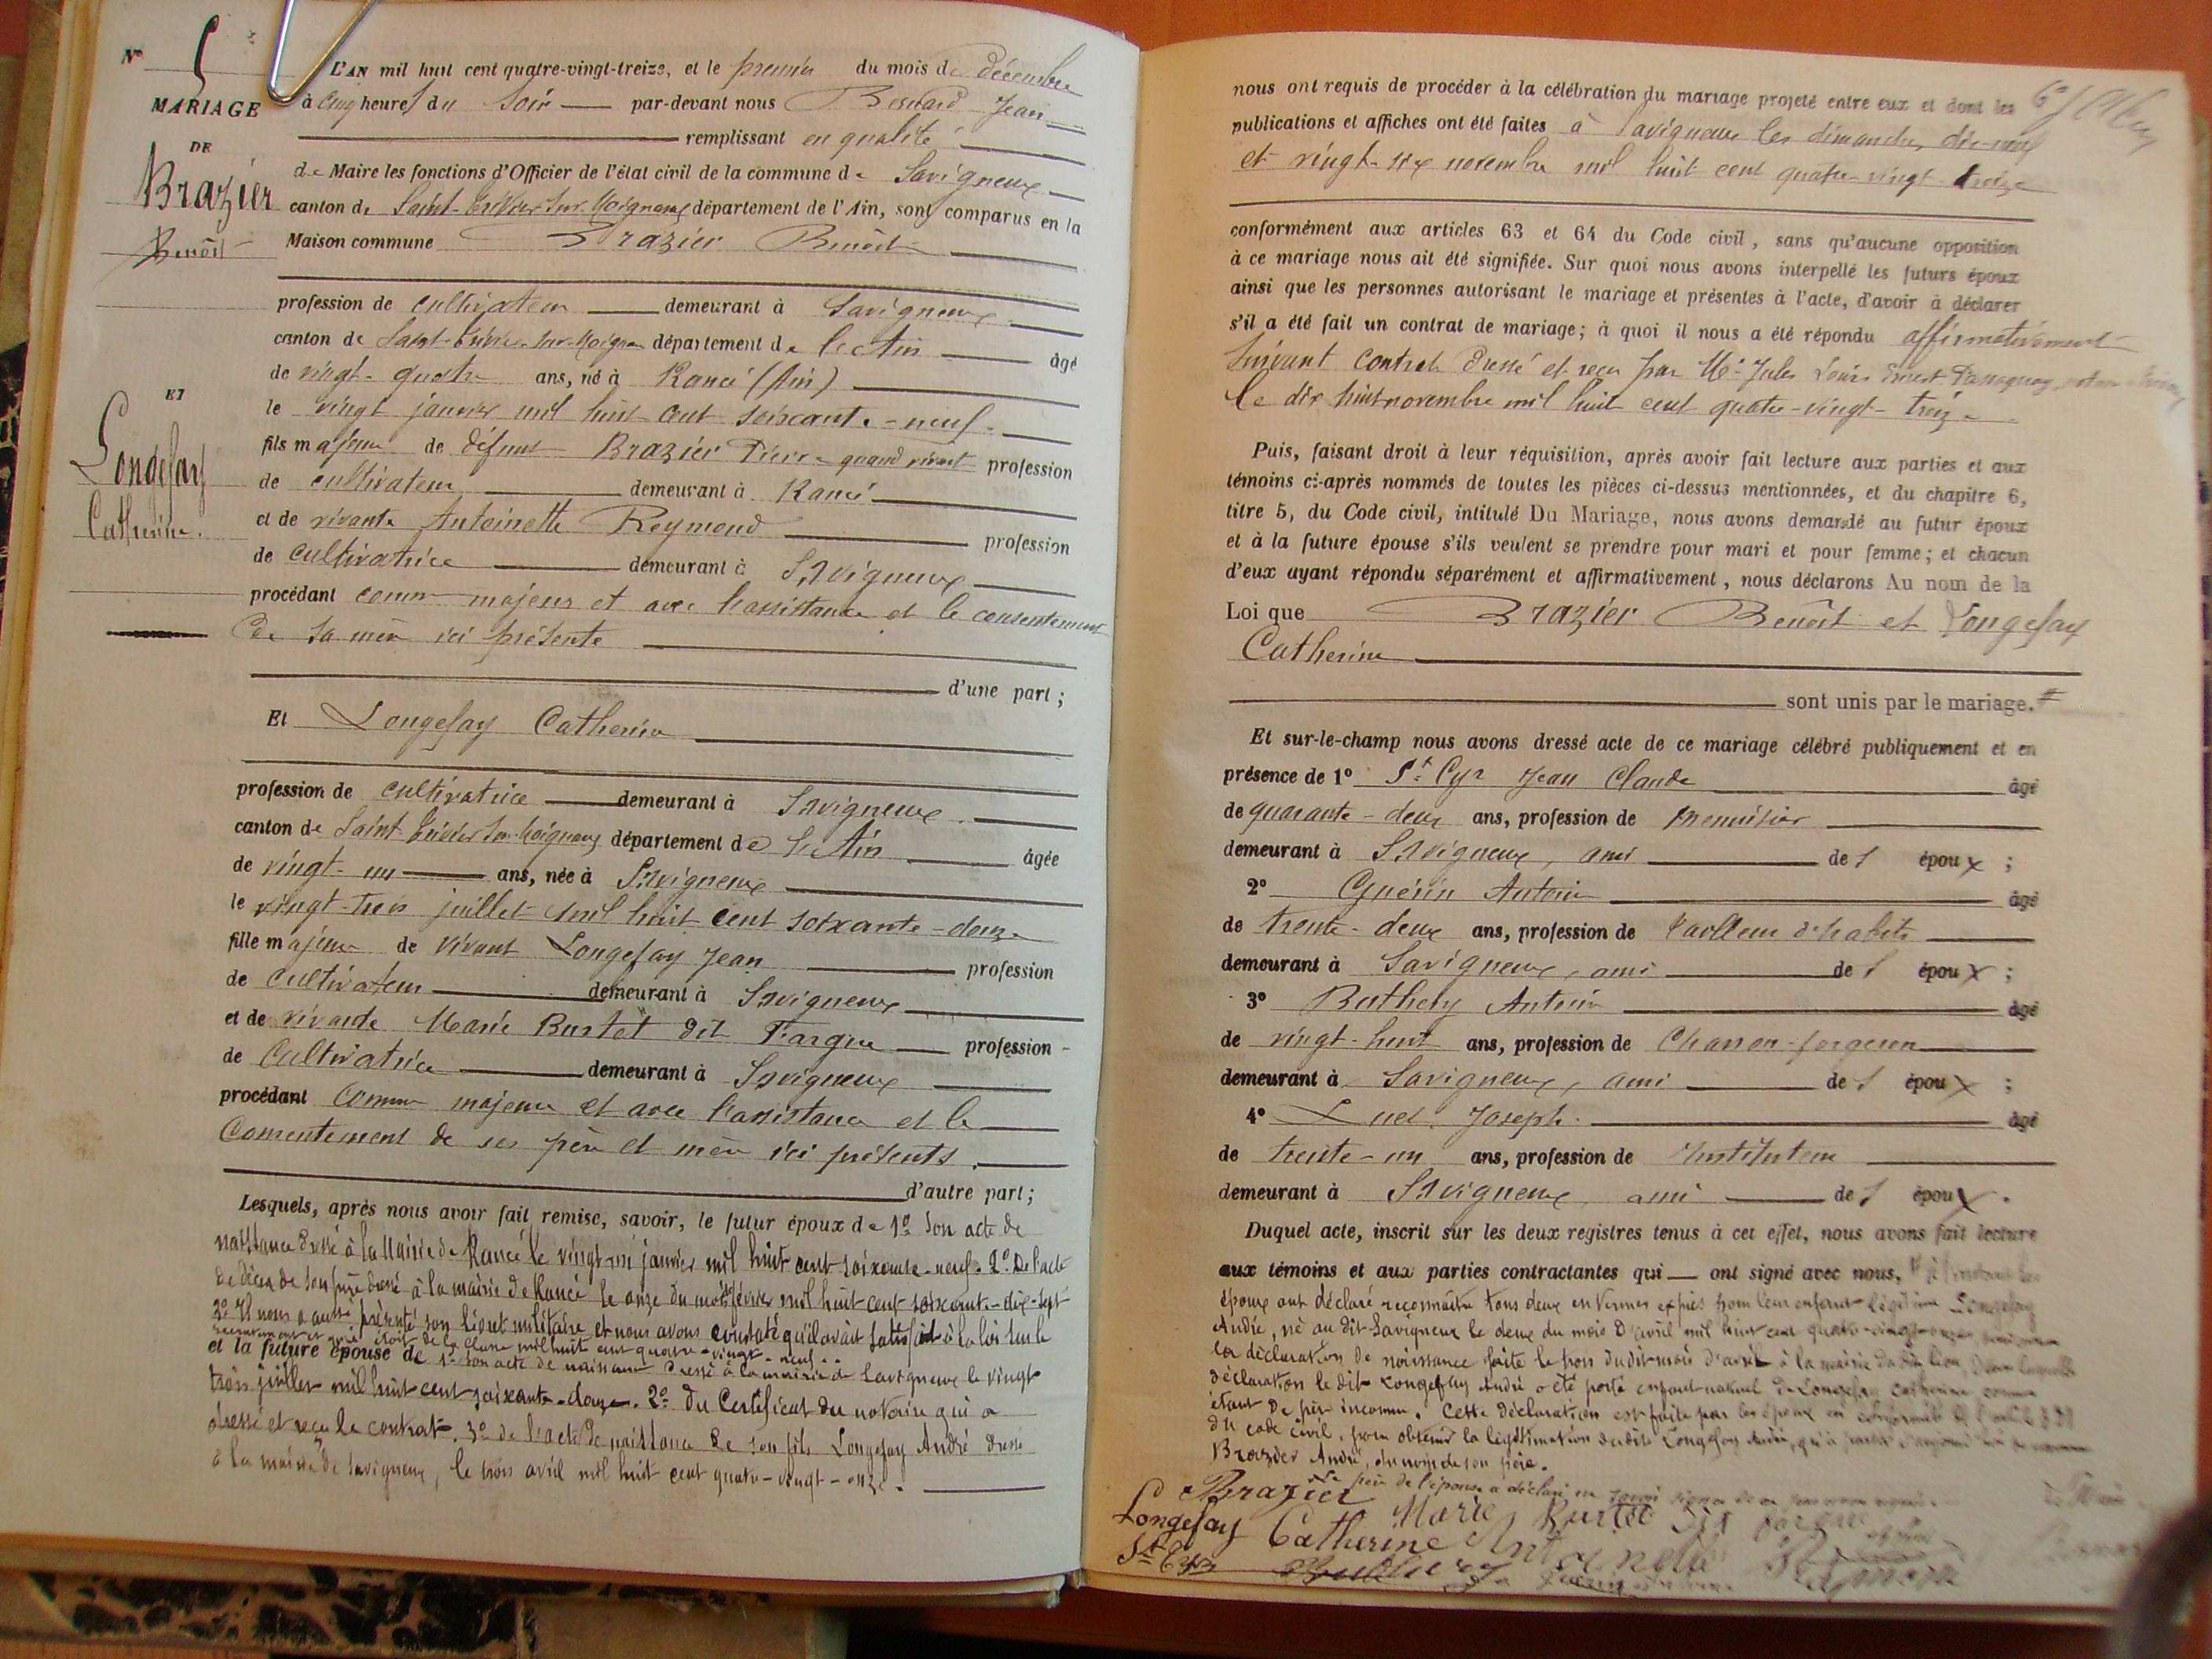 N° 5
MARIAGE
DE
Brazier
Benoît
ET
Longefay
Catherine.
L'AN mil huit cent quatre-vingt-treize, et le premier du mois de décembre
à cinq heures du soir par-devant nous Besnard Jean
remplissant en qualité
de Maire les fonctions d'Officier de l'état civil de la commune de Savigneux
canton de Saint-Trivier-sur-Moignans département de l'Ain, sont comparus en la
Maison commune Brazier Benoît
profession de cultivateur demeurant à Savigneux
canton de Saint-Trivier-sur-Moignans département de l'Ain âgé
de vingt-quatre ans, né à Rancé (Ain)
le vingt janvier mil huit cent soixante-neuf
fils majeur de défunt Brazier Pierre quand vivant profession
de cultivateur demeurant à Rancé
et de vivante Antoinette Reymond profession
de cultivatrice demeurant à Savigneux
procédant comme majeur et avec l'assistance et le consentement
de sa mère ici présente
d'une part ;
Et Longefay Catherine
profession de cultivatrice demeurant à Savigneux
canton de Saint-Trivier-sur-Moignans département de l'Ain âgée
de vingt-un ans, née à Savigneux
le vingt-trois juillet mil huit cent soixante-douze
fille majeure de vivant Longefay Jean profession
de cultivateur demeurant à Savigneux
et de vivante Marie Burtet dit Fargue profession
de Cultivatrice demeurant à Savigneux
procédant comme majeure et avec l'assistance et le
Consentement de ses père et mère ici présents.
d'autre part ;
Lesquels, après nous avoir fait remise, savoir, le futur époux de 1° Son acte de
naissance dressé à la Mairie de Rancé le vingt-un janvier mil huit cent soixante-neuf. 2° De l'acte
de décès de son père dressé à la mairie de Rancé le onze du mois de février mil huit cent soixante-dix-sept
3° Il nous a aussi présenté son livret militaire et nous avons constaté qu'il avait satisfait à la loi sur le
recrutement et qu'il était de la classe mil huit cent quatre-vingt-neuf.
et la future épouse de 1° Son acte de naissance dressé à la mairie de Savigneux le vingt
trois juillet mil huit cent soixante-douze. 2° du Certificat du notaire qui a
dressé et reçu le contrat. 3° de l'acte de naissance de son fils Longefay André dressé
à la mairie de Savigneux, le trois avril mil huit cent quatre-vingt-onze.
nous ont requis de procéder à la célébration du mariage projeté entre eux et dont les
publications et affiches ont été faites à Savigneux les dimanches dix-neuf
et vingt-six novembre mil huit cent quatre-vingt treize
conformément aux articles 63 et 64 du Code civil, sans qu'aucune opposition
à ce mariage nous ait été signifiée. Sur quoi nous avons interpellé les futurs époux
ainsi que les personnes autorisant le mariage et présentes à l'acte, d'avoir à déclarer
s'il a été fait un contrat de mariage ; à quoi il nous a été répondu affirmativement
suivant contrat dressé et reçu par Me Jules Louis Ernest
le dix huit novembre mil huit cent quatre-vingt-treize
Puis, faisant droit à leur réquisition, après avoir fait lecture aux parties et aux
témoins ci-après nommés de toutes les pièces ci-dessus mentionnées, et du chapitre 6,
titre 5, du Code civil, intitulé Du Mariage, nous avons demandé au futur époux
et à la future épouse s'ils veulent se prendre pour mari et pour femme ; et chacun
d'eux ayant répondu séparément et affirmativement, nous déclarons Au nom de la
Loi que Brazier Benoît et Longefay
Catherine
sont unis par le mariage. #
Et sur-le-champ nous avons dressé acte de ce mariage célébré publiquement et en
présence de 1° St Cyr Jean Claude âgé
de quarante-deux ans, profession de menuisier
demeurant à Savigneux, ami de l'époux ;
2° Guérin Antoine âgé
de trente-deux ans, profession de tailleur d'habits
demeurant à Savigneux, ami de l'époux ;
3° Buthery Antoine âgé
de vingt-huit ans, profession de Charron-forgeron
demeurant à Savigneux, ami de l'époux ;
4° Luel Joseph âgé
de trente-un ans, profession de Instituteur
demeurant à Savigneux, ami de l'époux.
Duquel acte, inscrit sur les deux registres tenus à cet effet, nous avons fait lecture
aux témoins et aux parties contractantes qui ont signé avec nous, # à l'instant les
époux ont déclaré reconnaître tous deux en termes exprès pour leur enfant légitime Longefay
André, né au dit Savigneux le deux du mois d'avril mil huit cent quatre-vingt-onze,
la déclaration de naissance faite le trois dudit mois d'avril à la mairie du dit lieu, dans laquelle
déclaration le dit Longefay André a été porté enfant naturel de Longefay Catherine comme
étant de père inconnu. Cette déclaration est faite par les époux en conformité de l'article 331
du code civil, pour obtenir la légitimation dudit Longefay André, qui
Brazier André, du nom de son père.
Brazier
père de l'épouse a déclaré ne savoir signer
Longefay Catherine Marie Burtet dit
St Cyr Buthery Antoinette Reymond